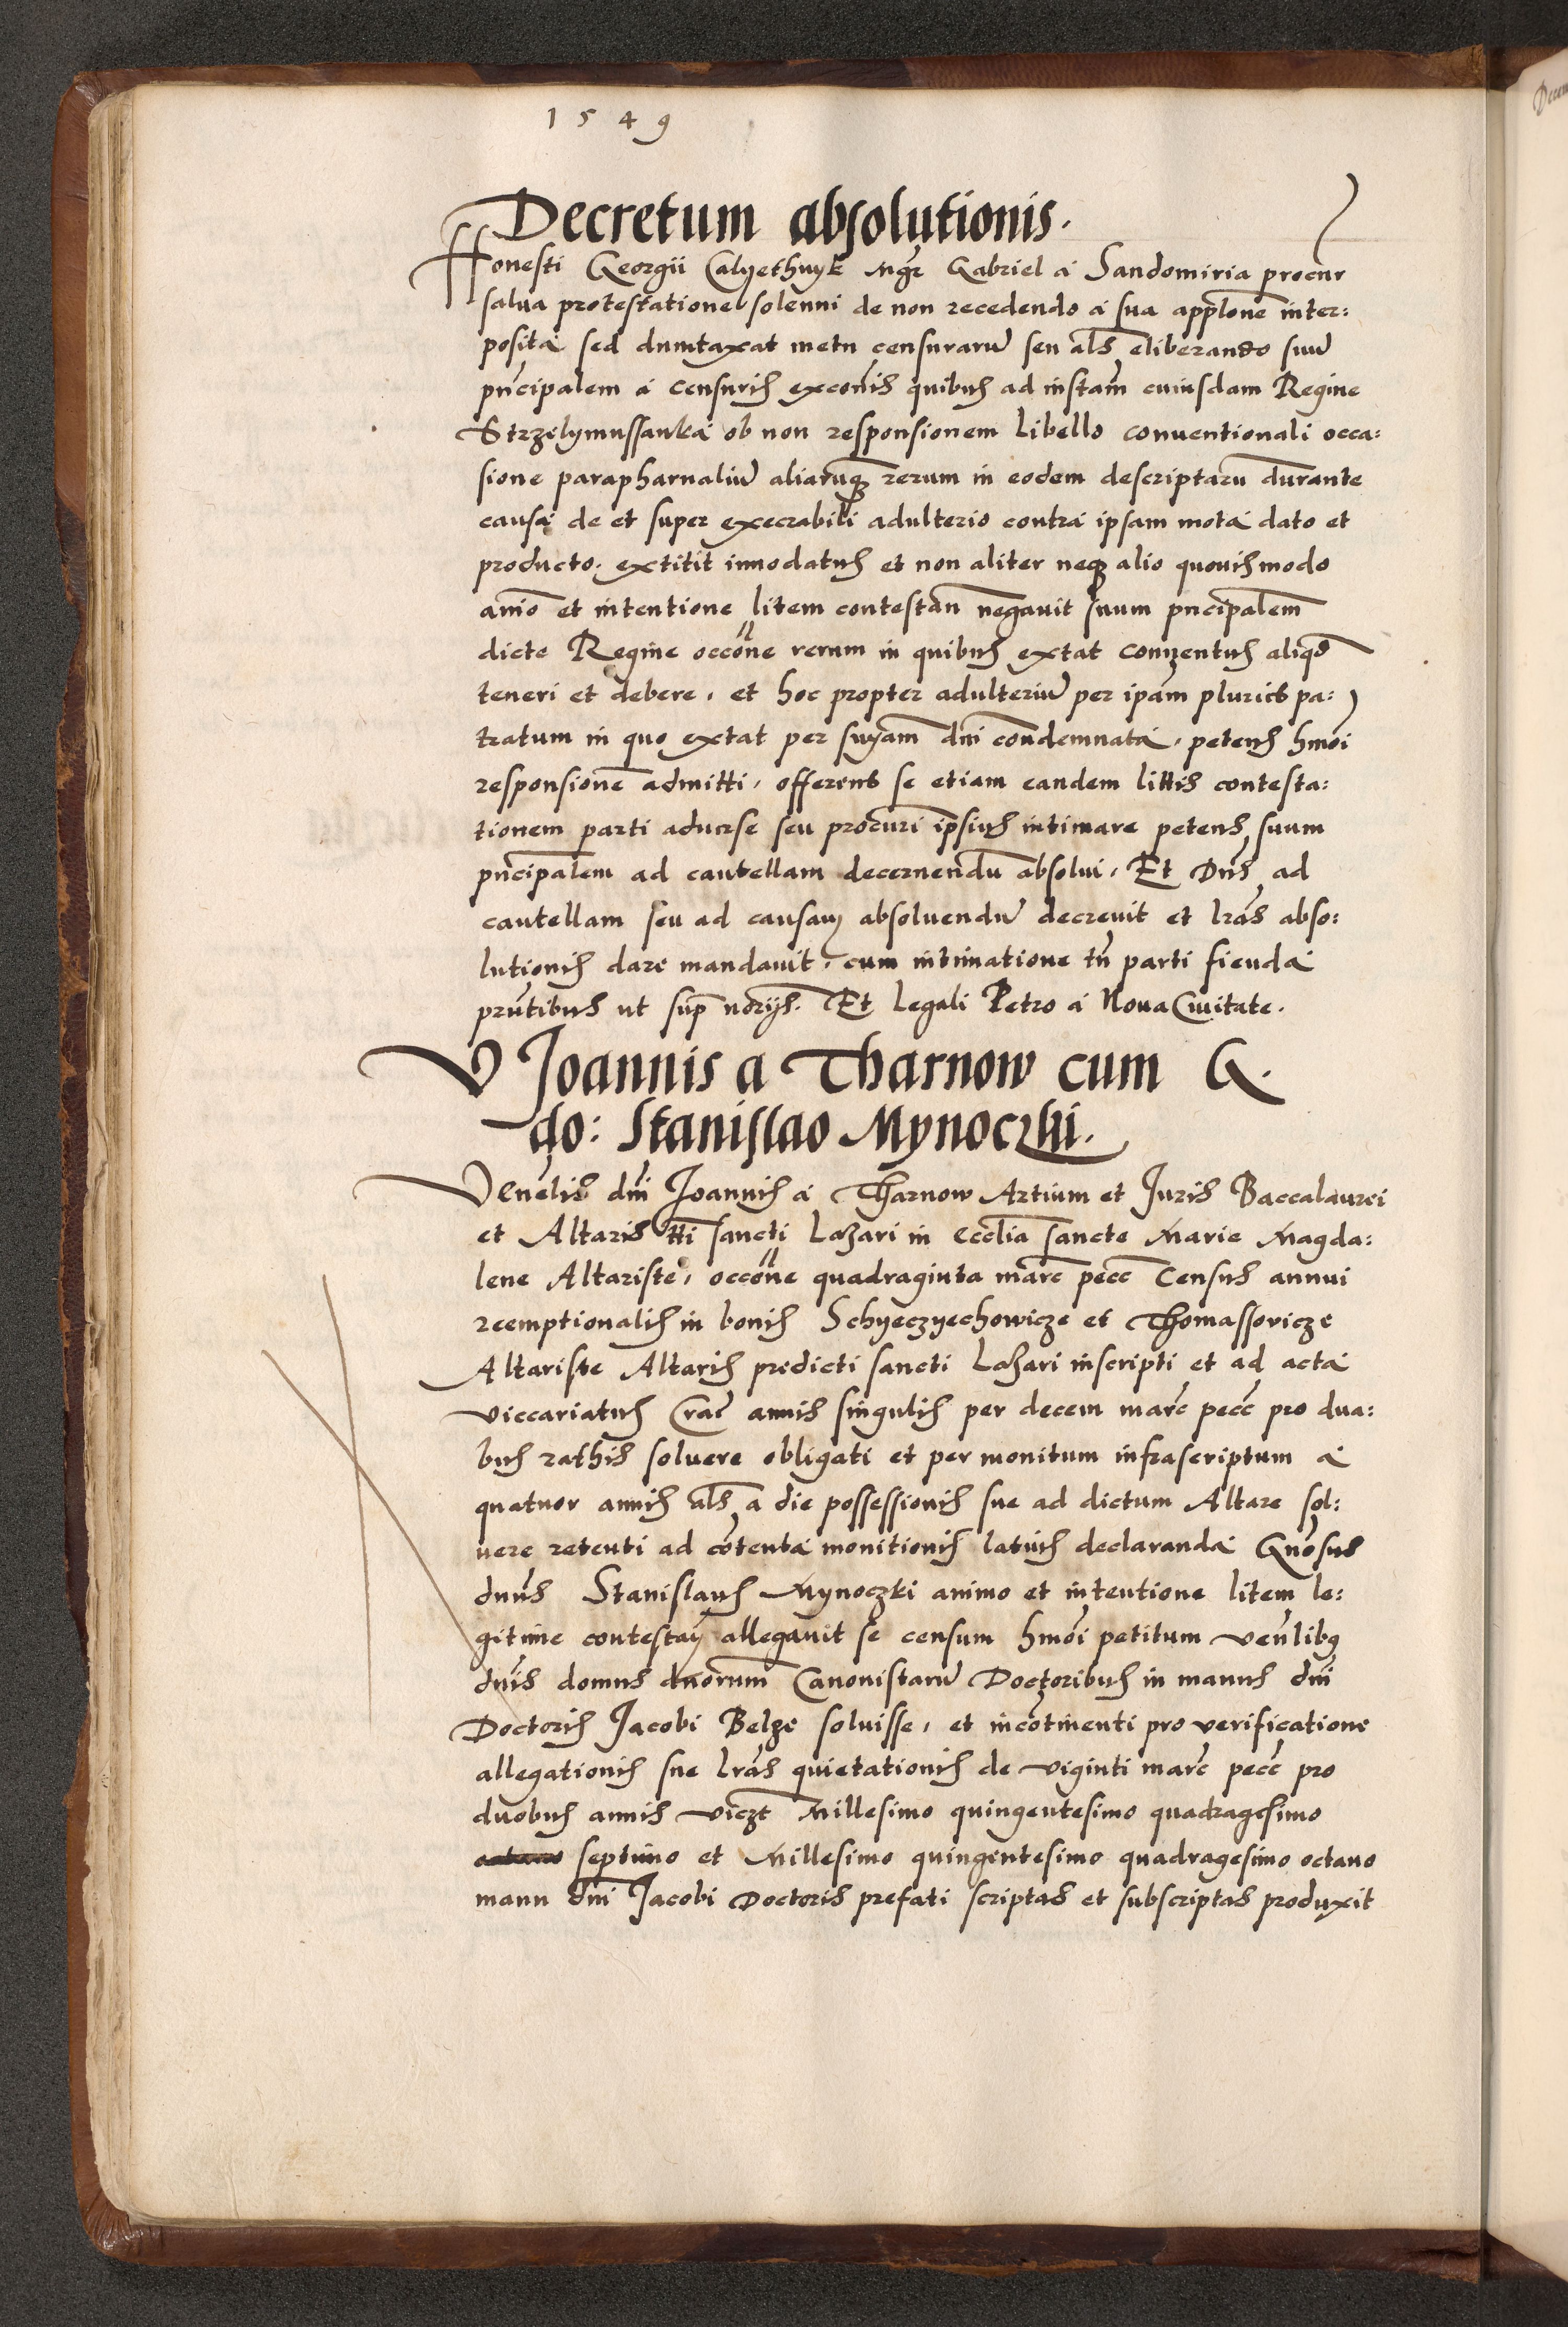 1549
Decretum absolutionis.
Honesti Georgii Calyethnyk Mgr Gabriel a Sandomiria procur
salua protestatione solenni de non recedendo a sua applone inter:
posita sed dumtaxat metu censuraru seu als eliberando suu
pncipalem a censuris exconis quibus ad instam cuiusdam Regine
Strzelymussanka ob non responsionem libello conuentionali occa:
sione parapharnaliu aliaruq rerum in eodem descriptaru durante
causa de et super execrabili adulterio contra ipsam mota dato et
producto. extitit innodatus et non aliter neq alio quouismodo
anio et intentione litem contestan negauit suum pncipalem
dicte Regine occone rerum in quibus extat conuentus aliqd
teneri et debere, et hoc propter adulteriu per ipam pluries pa:
tratum in quo extat per sniam dni condemnata, petens hmoi
responsione admitti, offerens se etiam eandem littis contesta:
tionem parti aduerse seu procuri ipsius intimare petens suum
pncipalem ad cautellam decernendu absolui, Et Dns ad
cautellam seu ad causam absoluendu decreuit et lras abso:
lutionis dare mandauit, cum intimatione tn parti fienda
pntibus ut sup norijs. Et Legali Petro a Noua Ciuitate.
V Joannis a Tharnow cum G.
do: Stanislao Mynoczki.
Venelis dni Joannis a Tharnow Artium et Juris Baccalaurei
et Altaris tti sancti Lazari in ecclia sancte Marie Magda:
lene Altariste, occone quadraginta marc pecc Census annui
reemptionalis in bonis Schyeczyechowicze et Thomassovicze
Altariste Altaris predicti sancti Lazari inscripti et ad acta
viccariatus Crac annis singulis per decem marc pecc pro dua:
bus rathis soluere obligati et per monitum infrascriptum a
quatuor annis als a die possessionis sue ad dictum Altare sol:
uere retenti ad cotenta monitionis latius declaranda Gnosus
dnus Stanislaus Mynoczki animo et intentione litem le:
gitime contestan allegauit se censum hmoi petitum venlibus
dnis domus duorum Canonistaru Doctoribus in manus dni
Doctoris Jacobi Belze soluisse, et incotinenti pro verificatione
allegationis sue lras quietationis de viginti marc pecc pro
duobus annis viczt Millesimo quingentesimo quadragesimo
octauo septimo et Millesimo quingentesimo quadragesimo octauo
manu dni Jacobi Doctoris prefati scriptas et subscriptas produxit